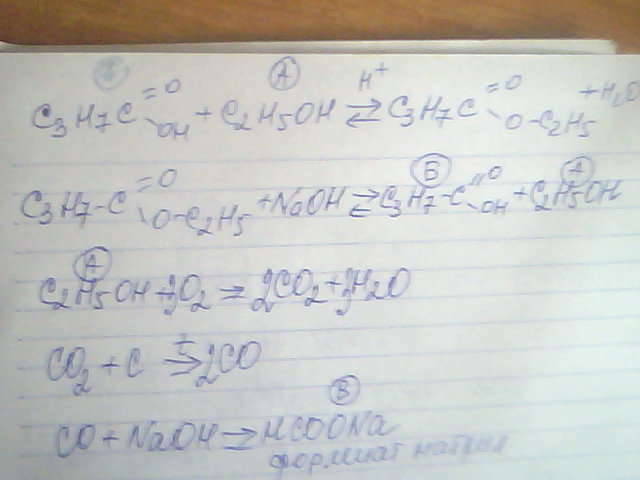 C₃H₇C =O OH + C₂H₅OH (A) ⇄ H⁺ C₃H₇C =O O-C₂H₅ + H₂O
C₃H₇-C =O O-C₂H₅ + NaOH ⇄ C₃H₇-C (Б) =O OH + C₂H₅OH (A)
C₂H₅OH (A) + 3O₂ → 2CO₂ + 3H₂O
CO₂ + C →t 2CO
CO + NaOH → HCOONa (В)
формиат натрия